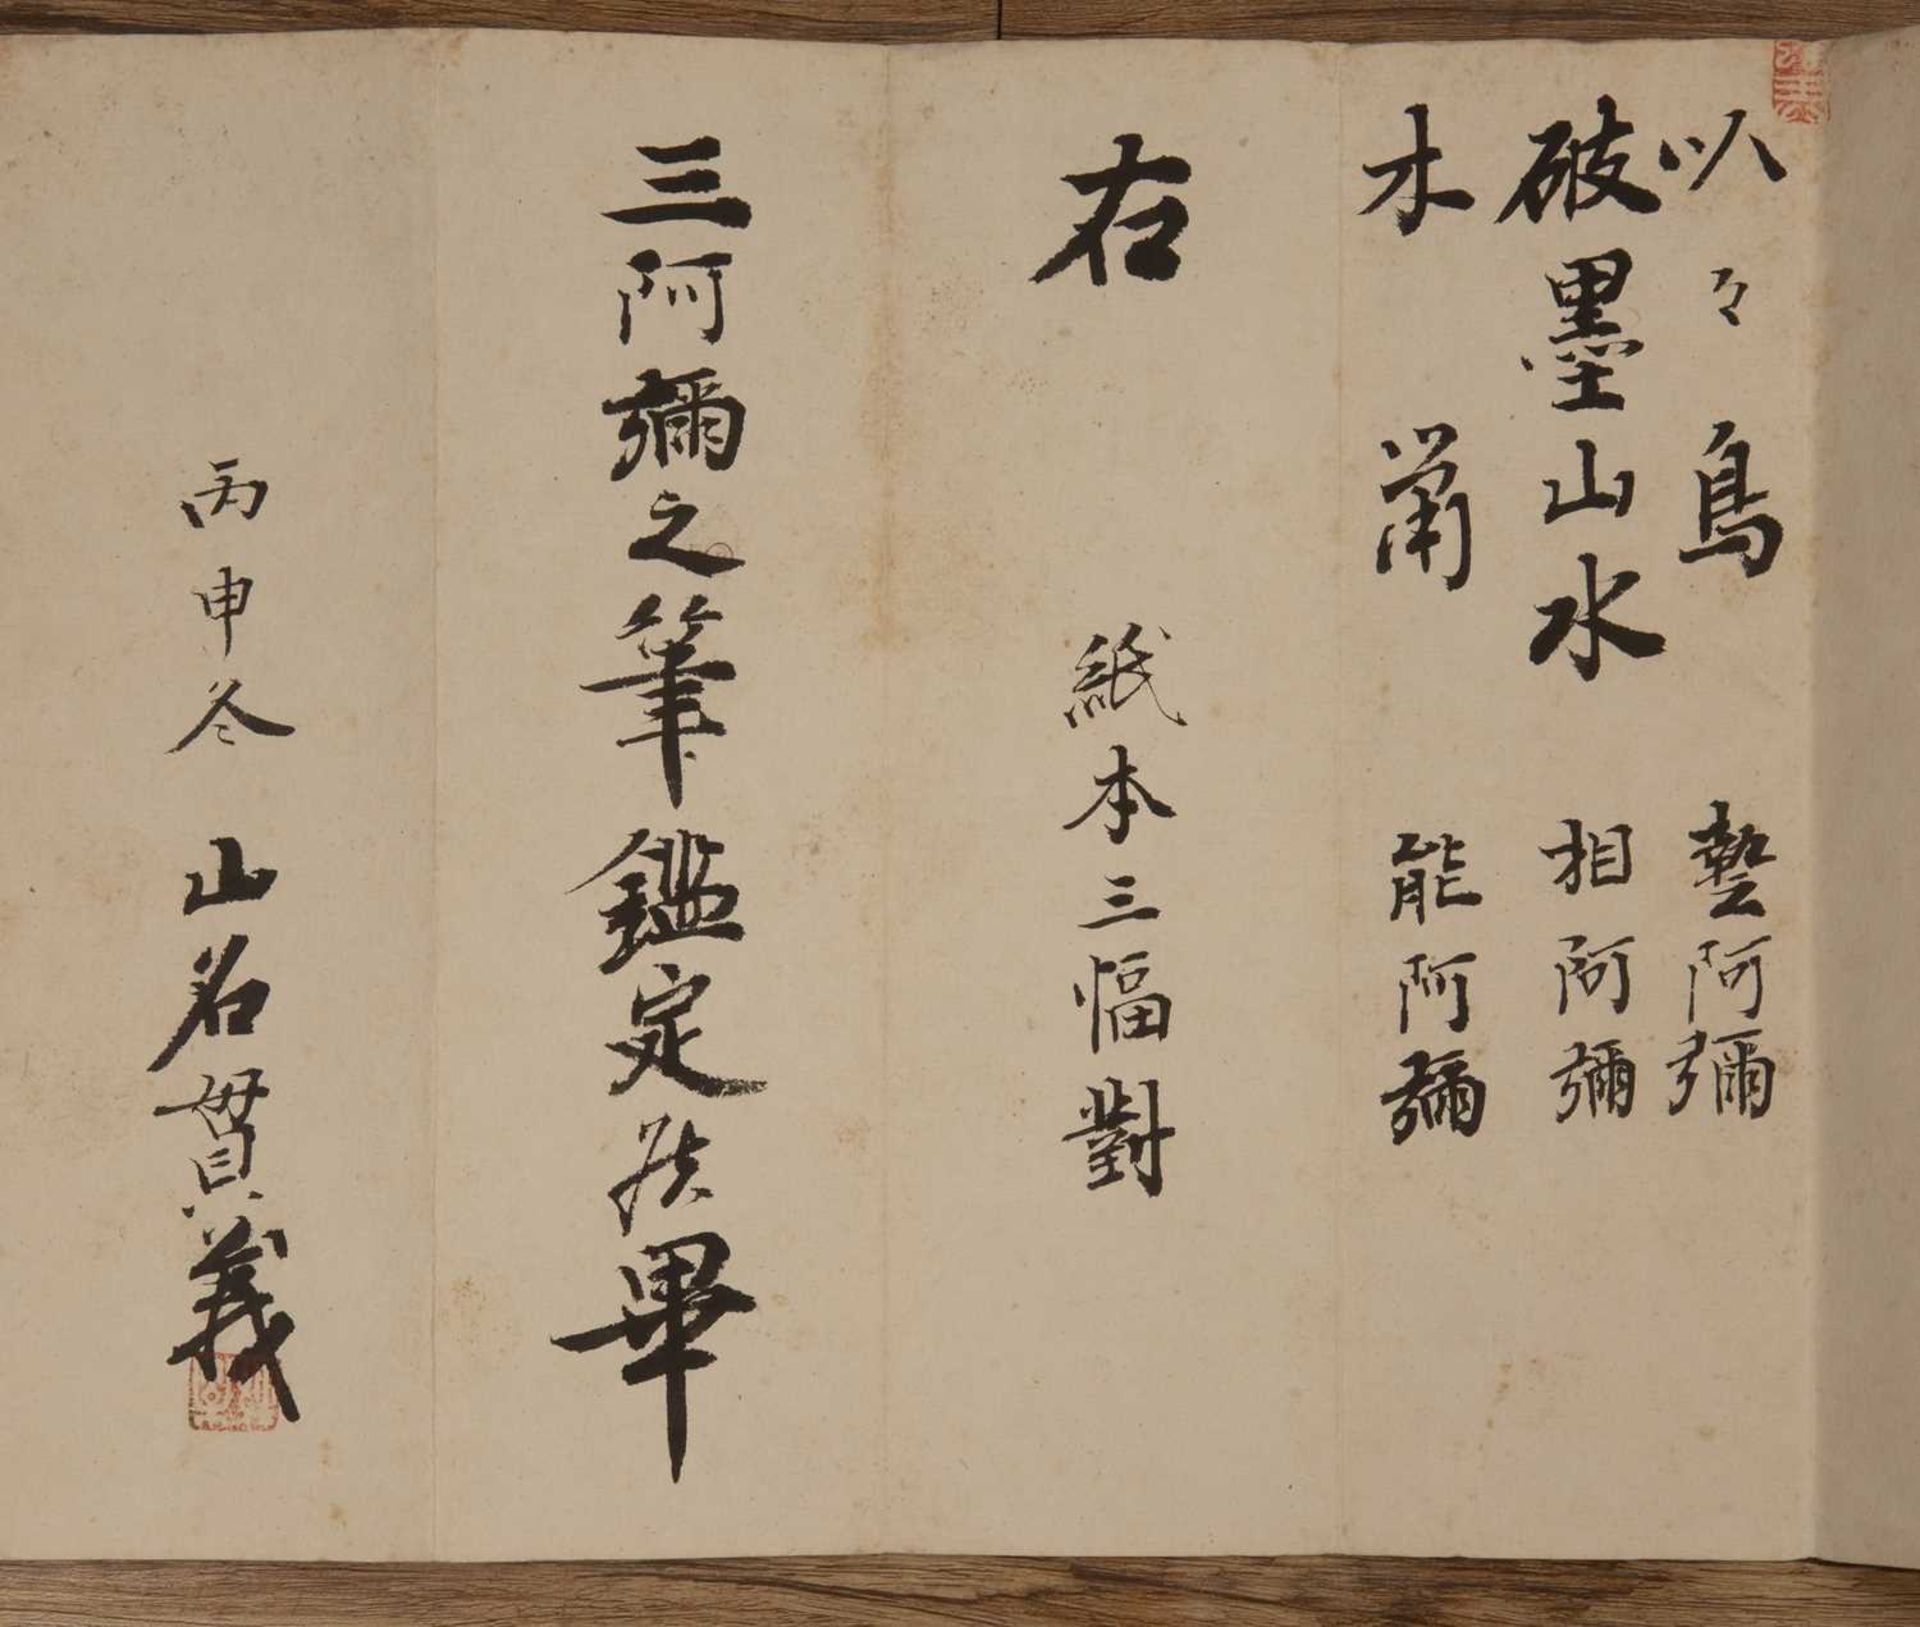 叭々鳥 藝阿彌
破墨山水 相阿彌
木 能阿彌
右 紙本三幅對
三阿彌之筆鑑定候畢
丙申冬 山名貫義